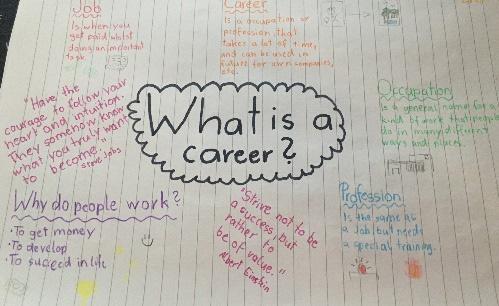 Job
Is when you
get paid whilst
doing an important
task.
Career
Is a occupation or
profession that
takes a lot of time,
and can be used in
future for own companies,
etc.
"Have the
courage to follow your
heart and intuition.
They somehow know
what you truly want
to become."
Steve Jobs
What is a
career?
Occupation
is a general name for a
kind of work that people
do in many different
ways and places.
Why do people work?
• To get money
• To develop
• To succeed in life
"Strive not to be
a success, but
rather to
be of value."
Albert Einstein
Profession
Is the same as
a Job, but needs
a special training.